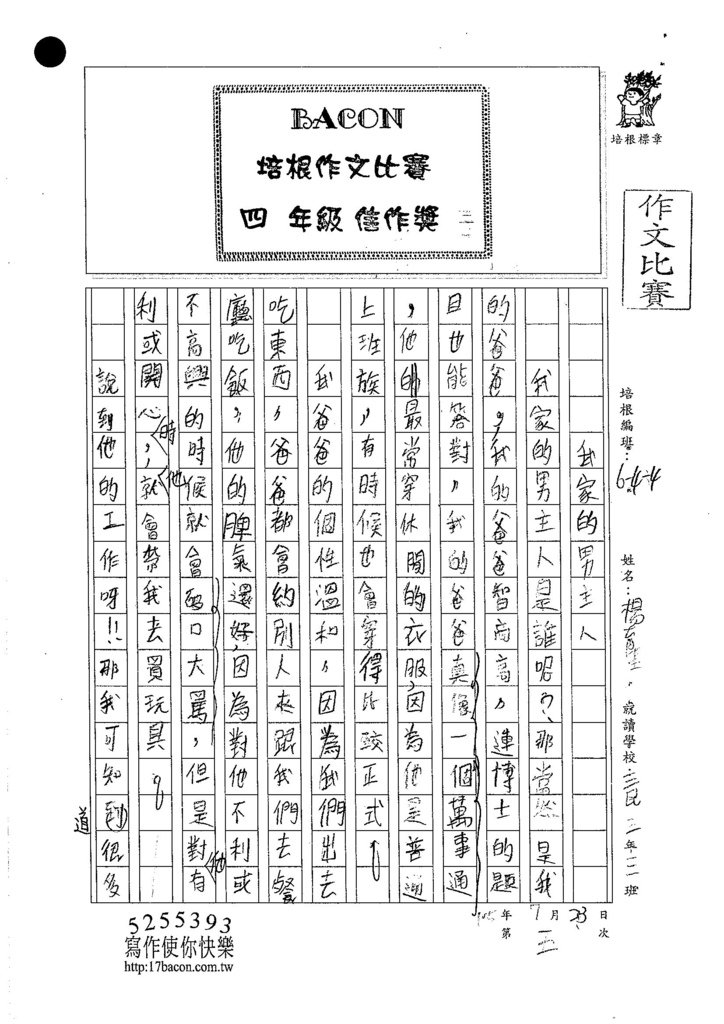 BACON
培根作文比賽
四 年級 佳作獎
培根標章
作文比賽
培根編班：6-4-4 姓名：楊 就讀學校 三民 三年 二 班
105年7月23日
第 五 次
我家的男主人
我家的男主人是誰呢？那當然是我
的爸爸，我的爸爸智商高，連博士的題
目也能答對，我的爸爸真像一個萬事通
，他的最常穿休閒的衣服，因為他是普通
上班族，有時候也會穿得比較正式。
我爸爸的個性溫和，因為我們出去
吃東西，爸爸都會約別人來跟我們去餐
廳吃飯，他的脾氣還好，因為對他不利或
不高興的時候就會破口大罵，但是對他有
利或開心時，他就會帶我去買玩具。
說到他的工作呀!!那我可知道到很多
5255393
寫作使你快樂
http:17bacon.com.tw